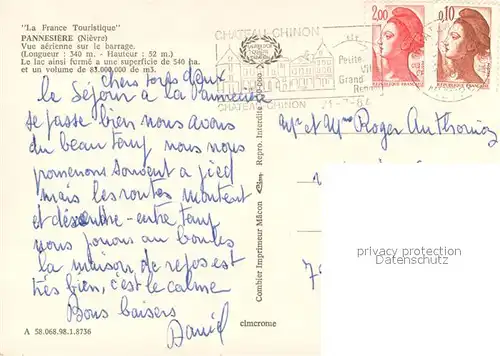 "La France Touristique"
PANNESIÈRE (Nièvre)
Vue aérienne sur le barrage.
(Longueur : 340 m. - Hauteur : 52 m.)
Le lac ainsi formé a une superficie de 540 ha.
et un volume de 83.000.000 de m3.
Chers tous deux
le séjour à la Pannetière
se passe bien nous avons
du beau temps nous nous
promenons souvent à pied
mais les routes montent
et descendre - entre temps
nous jouons au boules
la maison de repos est
très bien, c'est le calme
Bons baisers
Daniel
A 58.068.98.1.8736
cimcrome
Combier Imprimeur Mâcon
Repro. Interdite
CHATEAU CHINON
Petite
Grand
CHATEAU CHINON
2,00
REPUBLIQUE FRANÇAISE
0,10
REPUBLIQUE FRANÇAISE
Mr et Mme Roger Anthoning
privacy protection
DATENSCHUTZ